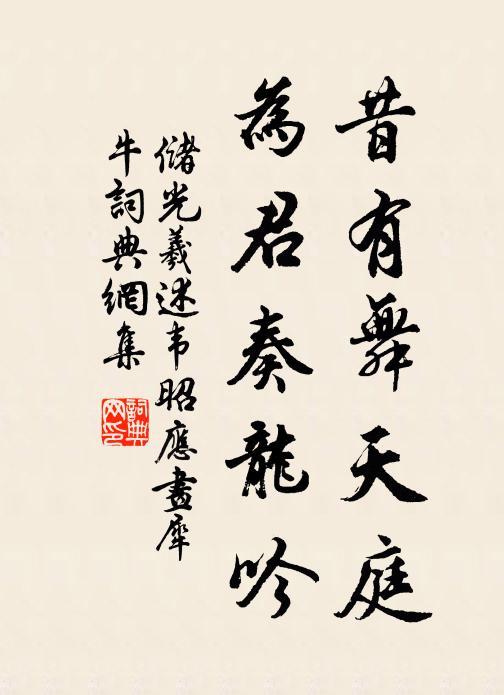 昔有舞天庭
為君奏龍吟
儲光羲述韦昭應畫犀
牛詞典網集
詞典
网印